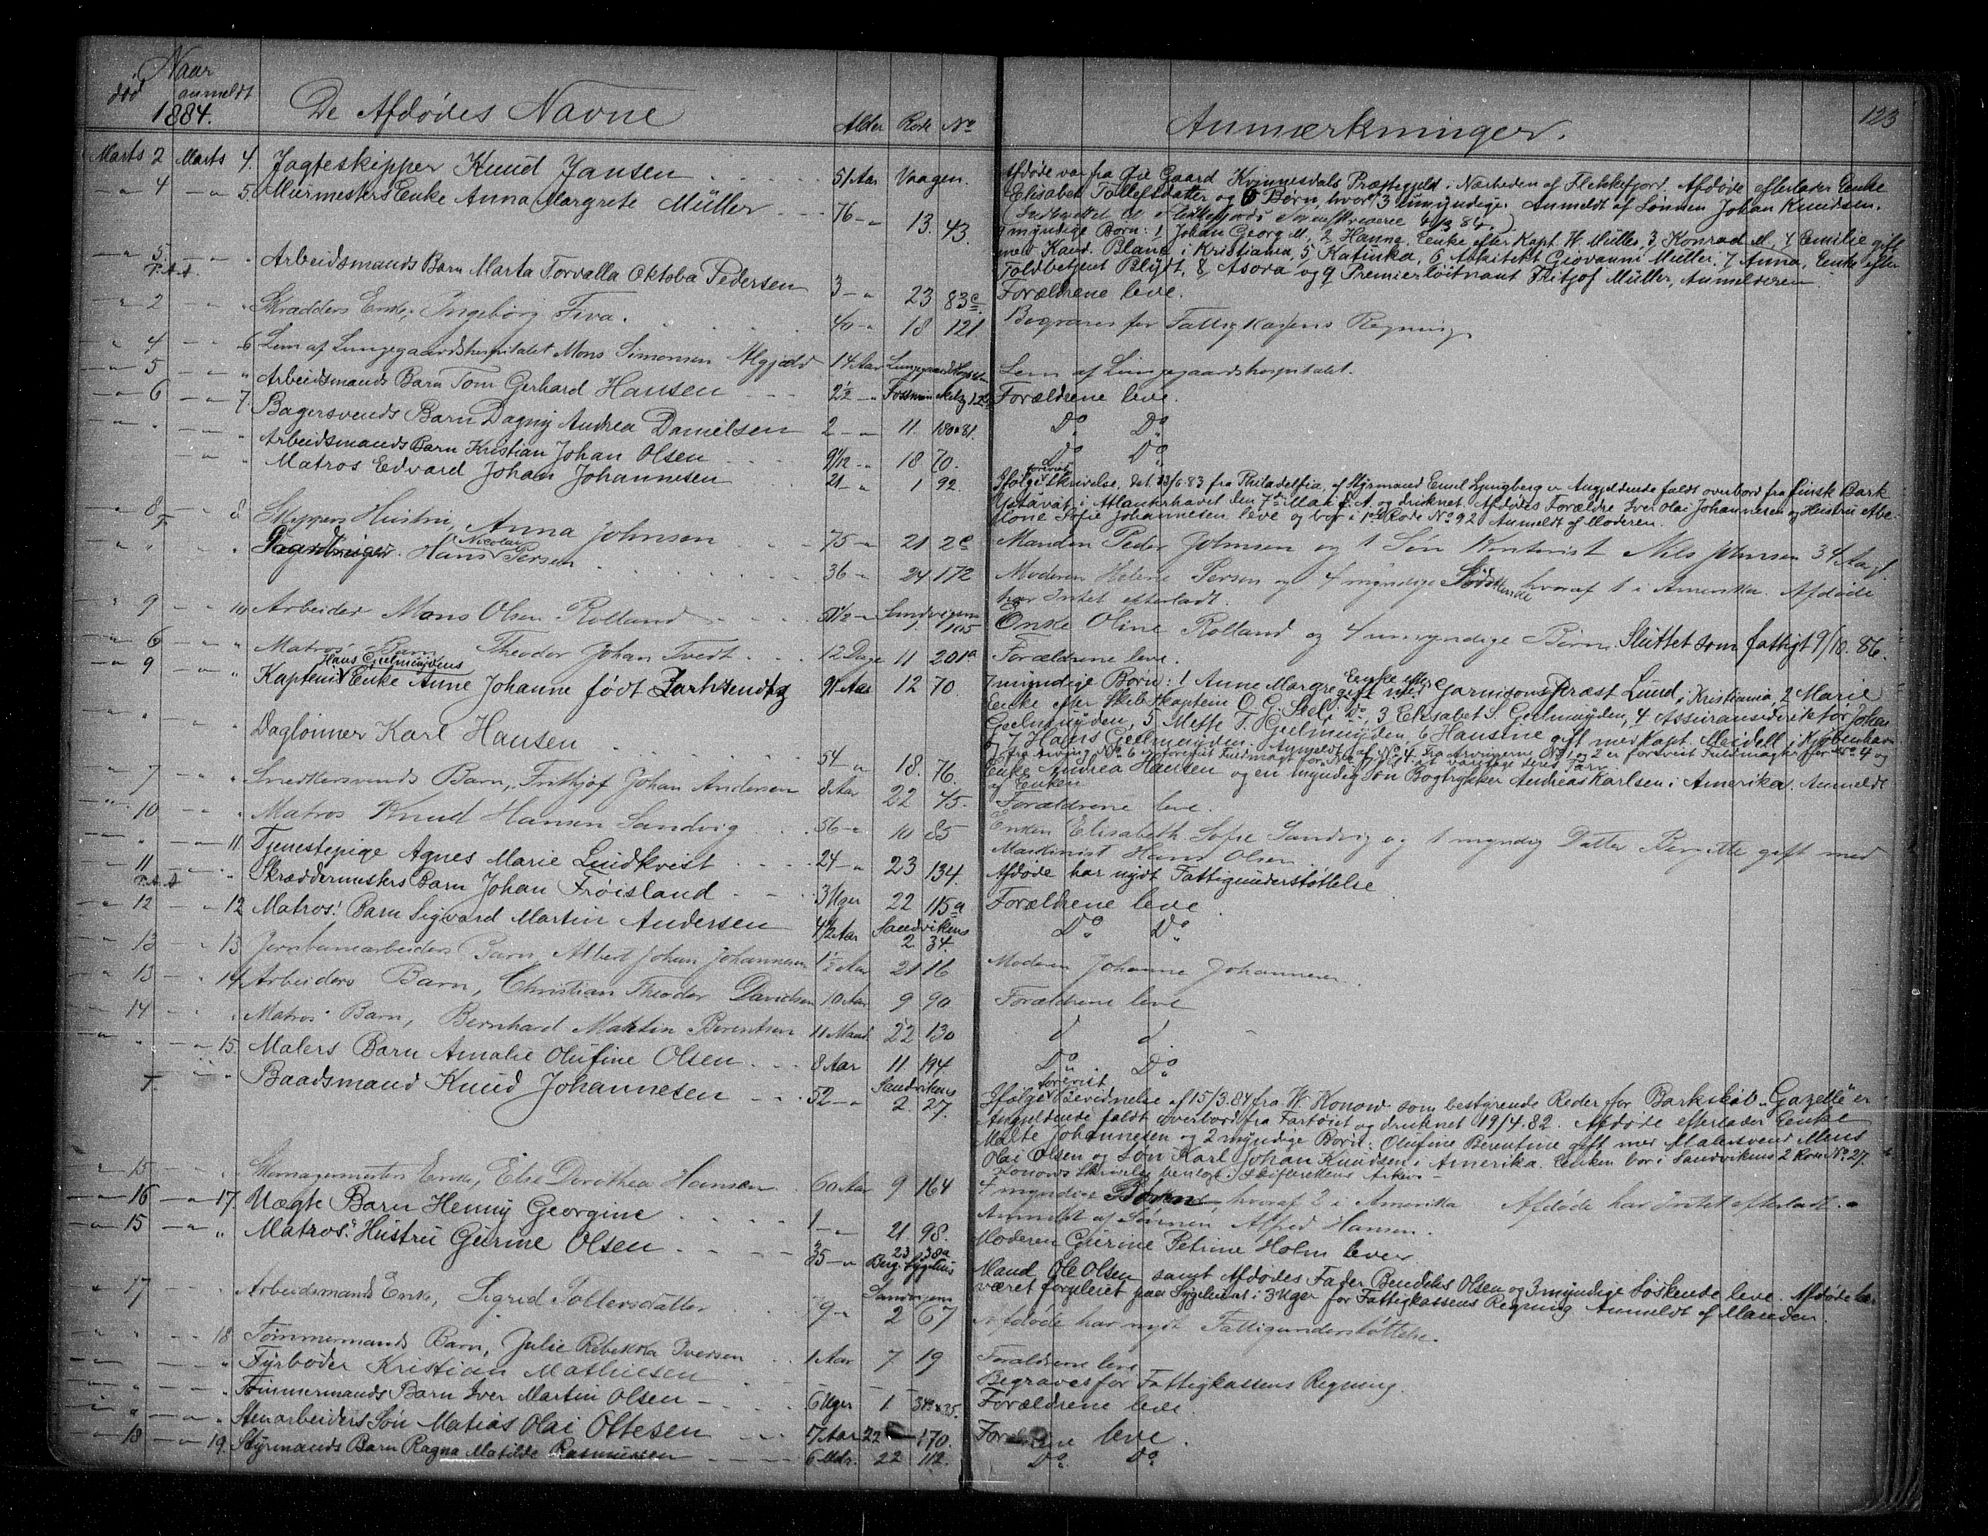 Naar
død anmeldt
1884.
De Afdødes Navne
Alder Rode No
Anmærkninger.
123
Marts 2 Marts 4. Jagteskipper Knud Jansen 51 Aar Vaagen.
Afdøde var fra Gaard Kvinnesdals Præstegjeld i Nærheden af Flekkefjord. Afdøde efterlader Enke
Elisabet Tollefsdatter og 6 Børn, hvor 3 umyndige. Anmeldt af Sønnen Johan Knudsen.
4 5. Murmesters Enke Anna Margrete Müller 76 13. 43.
9 myndige Børn: 1 Johan Georg M., 2 Hanna, Enke efter Kapt. W. Müller, 3 Konrad M, 4 Emilie gift
med Kand. Blanc i Kristiania, 5 Katinka, 6 Arkitekt Giovanni Müller, 7 Anna, Enke efter
Toldbetjent Blydt, 8 Asora og 9 Premierløitnant Fritjof Müller, Anmelderen.
5. Arbeidsmands Barn Marta Torvalla Oktoba Pedersen 3 23 83c Forældrene leve.
2 Skrædders Enke, Ingebørg Fiva. 40 18 121 Begraves for Fattigkassens Regning.
4 6 Lem af Lungegaardshospitalet Mons Simonsen 14 Aar Lem af Lungegaardshospitalet.
5 Arbeidsmands Barn Tom Gerhard Hansen 2½ Forældrene leve.
6 7. Bagersvends Barn Dagny Andrea Danielsen 2 11. 180 & 81. Do Do
Arbeidsmands Barn Kristian Johan Olsen 9/12 18 70. Do Do
Matros Edvard Johan Johannesen 21 1 92.
Ifølge forevist Skrivelse, dat. 23/6 83 fra Philadelfia, af Styrmand Emil Ljungberg er Angjeldende faldt overbord fra finsk Bark
i Atlanterhavet den 7de Mai f. A. og druknet. Afdødes Forældre Iver Olai Johannesen og Hustru
Sofie Johannesen leve og bor i 1ste Rode No 92 Anmeldt af Moderen.
8 8. Skippers Hustru, Anna Johnsen 75 21 2c Manden Peder Johnsen og 1 Søn Kontorist Nils Johnsen 34 Aar gl.
Hans Nicolay Persen 36 24 172 Moderen Helene Persen og 4 myndige Sødskende hvoraf 1 i Amerika. Afdøde
har Intet efterladt.
9 10 Arbeider Mons Olsen Rolland 51½ Sandvigen 1. 105 Enke Oline Rolland og 4 umyndige Børn. Sluttet som fattigt 9/10. 86.
6 Matros' Barn Theodor Johan Tvedt 12 Dage 11 201a Forældrene leve.
9 Kaptein Hans Gjelmuydens Enke Anne Johanne født 91 Aar 12 70.
7 myndige Børn: 1 Anne Margrete Enke efter Garnisons Præst Lund, i Kristiania, 2 Marie
Enke efter Skibskaptein O. G. do, 3 Elisabet S. Geelmuyden, 4 Assuransedirektør Johan
Geelmuyden, 5 Meffe T. Gjelmuyden, 6 Hansine gift med Kapt. Meidell i Kjøbenhavn
& 7 Hans Geelmuyden. Anmeldt af No 4. Fra Arvingerne No 1 og 2 er forevist Fuldmagter for No 4 og
Daglønner Karl Hansen 54 18. 76. Enke Andrea Hansen og en myndig Søn Bogtrykker Andreas Karlsen i Amerika. Anmeldt
af Enken
7 Snedkersvends Barn, Frithjof Johan Andersen 8 Aar 22 45. Forældrene leve.
10 Matros Knud Hansen Sandvig 56 10 85 Enken Elisabeth Sofie Sandvig og 1 myndig Datter Birgitte gift med
Maskinist Hans Olsen.
11 Tjenestepige Agnes Marie Lindkvist 24 23 134. Afdøde har nydt Fattigunderstøttelse.
11 Skræddermesters Barn Johan Frøisland 3 Uger 22 115a Forældrene leve.
12 12 Matros' Barn Sigvard Martin Andersen 4½ Aar Sandvikens 2. 34. Do Do
13 13 Jernbanearbeiders Barn, Albert Johan Johannesen 1½ Aar 21 16 Moderen Johanne Johannesen.
13 14 Arbeiders Barn, Christian Theodor Davidsen 10 Aar 9 90 Forældrene leve
14 Matros' Barn, Bernhard Martin Berentsen 11 Maand 22 130 d d
15. Malers Barn Amalie Olufine Olsen 8 Aar 11 194 Do Do
Baadsmand Knud Johannesen 52 Sandvikens 2. 27.
Ifølge forevist Bevidnelse af 15/3.84 fra W Konow som bestyrende Reder for Barkskib "Gazelle" er
Angjeldende faldt overbord fra Fartøiet og druknet 19/4.82. Afdøde efterlader Enke
Malte Johannesen og 2 myndige Børn: Olufine Berentine gift med Malersvend Mons
Olai Olsen og Søn Karl Johan Knudsen i Amerika. Enken bor i Sandvikens 2 Rode No 27.
Konows Skrivelse henlagt i Skifterettens Arkiv.
15 Skomagermesters Enke, Else Dorothea Hansen 60 Aar 9 164 4 myndige Børn, hvoraf 2 i Amerika. Afdøde har Intet efterladt.
Anmeldt af Sønnen Alfred Hansen.
16 17. Uægte Barn Henny Georgine 1 21. 98. Moderen Gurine Petrine Holm lever
15 Matros' Hustru Gurine Olsen 35 23 38a Berg. Sygehus
Mand Ole Olsen samt Afdødes Fader Bendiks Olsen og 3 myndige Søskende leve. Afdøde har
været forpleiet paa Sygehuset i 3 Uger for Fattigkassens Regning Anmeldt af Manden.
17 Arbeidsmands Enke, Sigrid Tollersdatter 79 Sandvigens 2 67 Afdøde har nydt Fattigunderstøttelse.
18. Tømmermands Barn, Julie Rebekka Iversen 1 Aar 7 19 Forældrene leve
Fyrbøder Kristian Mathiesen Begraves for Fattigkassens Regning.
Tømmermands Barn Iver Martin Olsen 6 Uger 1 Forældrene leve
Stenarbeiders Søn Matias Olai Ottesen 7 Aar 22 170. Forældrene leve.
18 19. Styrmands Barn Ragna Matilde Rasmussen 6 Mdr. 22 112. Do Do